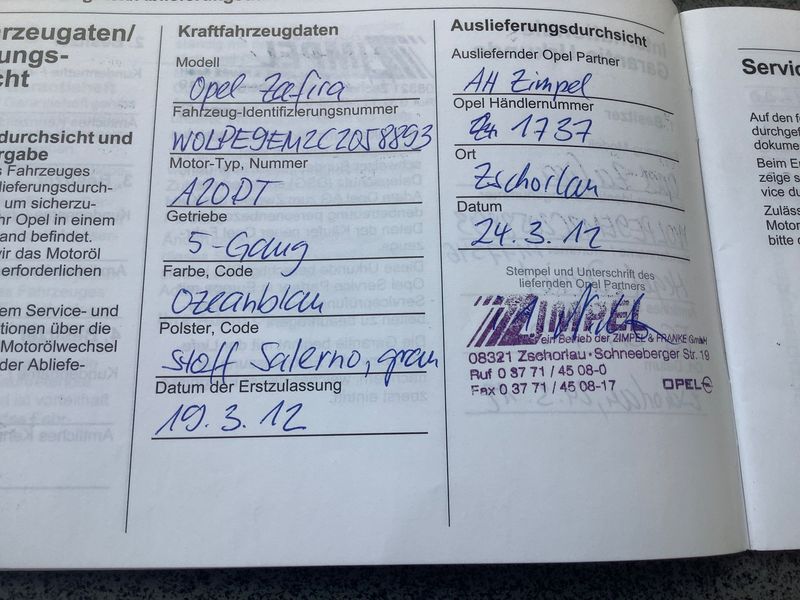 rzeugaten/
ungs-
cht
durchsicht und
rgabe
s Fahrzeuges
lieferungsdurch-
um sicherzu-
hr Opel in einem
and befindet.
vir das Motoröl
erforderlichen
em Service- und
tionen über die
Motorölwechsel
der Abliefe-
Kraftfahrzeugdaten
Modell
Opel Zafira
Fahrzeug-Identifizierungsnummer
WOLPE9EM2C2058893
Motor-Typ, Nummer
A20DT
Getriebe
5-Gang
Farbe, Code
Ozeanblau
Polster, Code
Stoff Salerno, grau
Datum der Erstzulassung
19.3.12
Auslieferungsdurchsicht
Ausliefernder Opel Partner
AH Zimpel
Opel Händlernummer
1737
Ort
Zschorlau
Datum
24.3.12
Stempel und Unterschrift des
liefernden Opel Partners
ZIMPEL
ein Betrieb der ZIMPEL & FRANKE GmbH
08321 Zschorlau · Schneeberger Str. 19
Ruf 0 37 71 / 45 08-0
Fax 0 37 71 / 45 08-17 OPEL
Servic
Auf den f
durchgef
dokume
Beim Er
zeige s
vice du
Zuläss
Motor
bitte